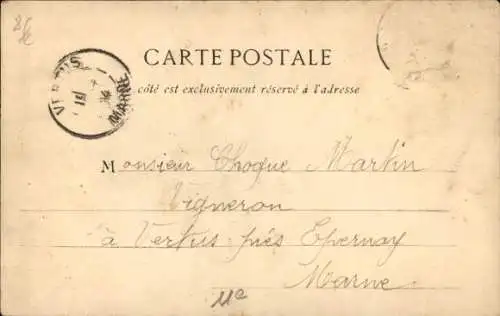 CARTE POSTALE
côté est exclusivement réservé à l'adresse
VERTUS
MARNE
Monsieur Choque Martin
Vigneron
à Vertus près Epernay
Marne